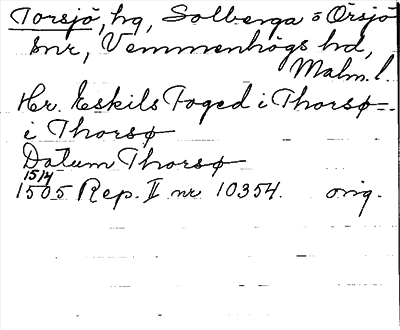 Torsjö, hg, Solberga o Örsjö
snr, Vemmenhögs hd,
Malm. l.
Hr. Eskils Foged i Thorsø=
i Thorsø
Datum Thorsø
15/4
1505 Rep. II nr 10354. orig.